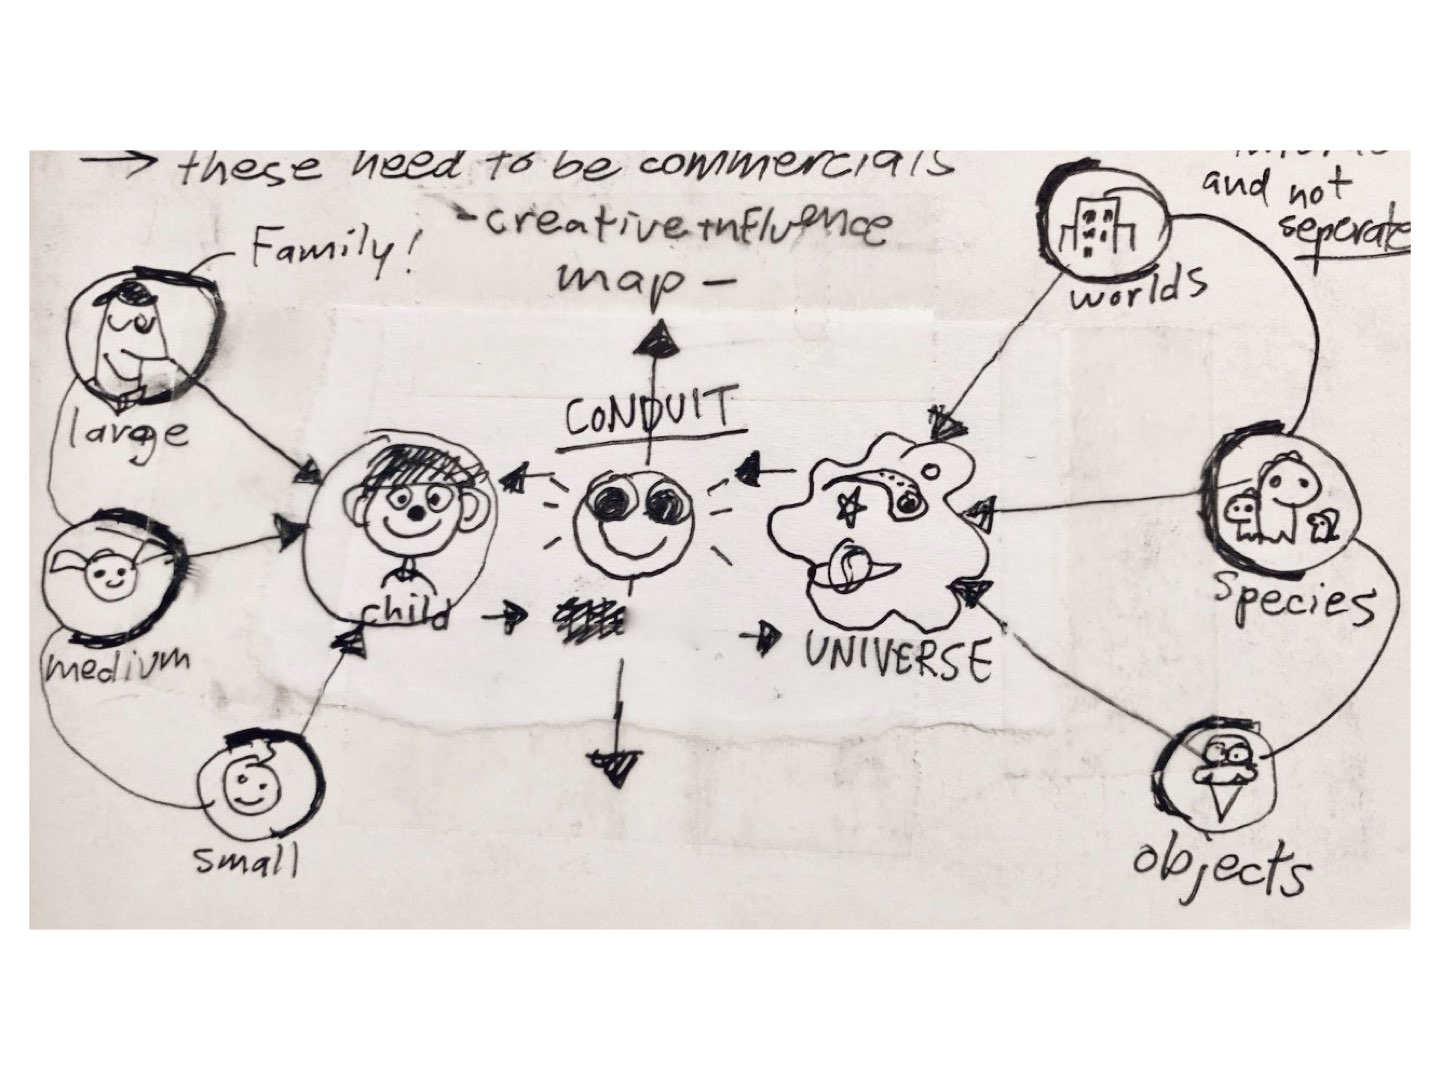 → these need to be commercials
and not
seperate
- creative influence
map -
Family!
worlds
CONDUIT
large
child
species
UNIVERSE
medium
small
objects